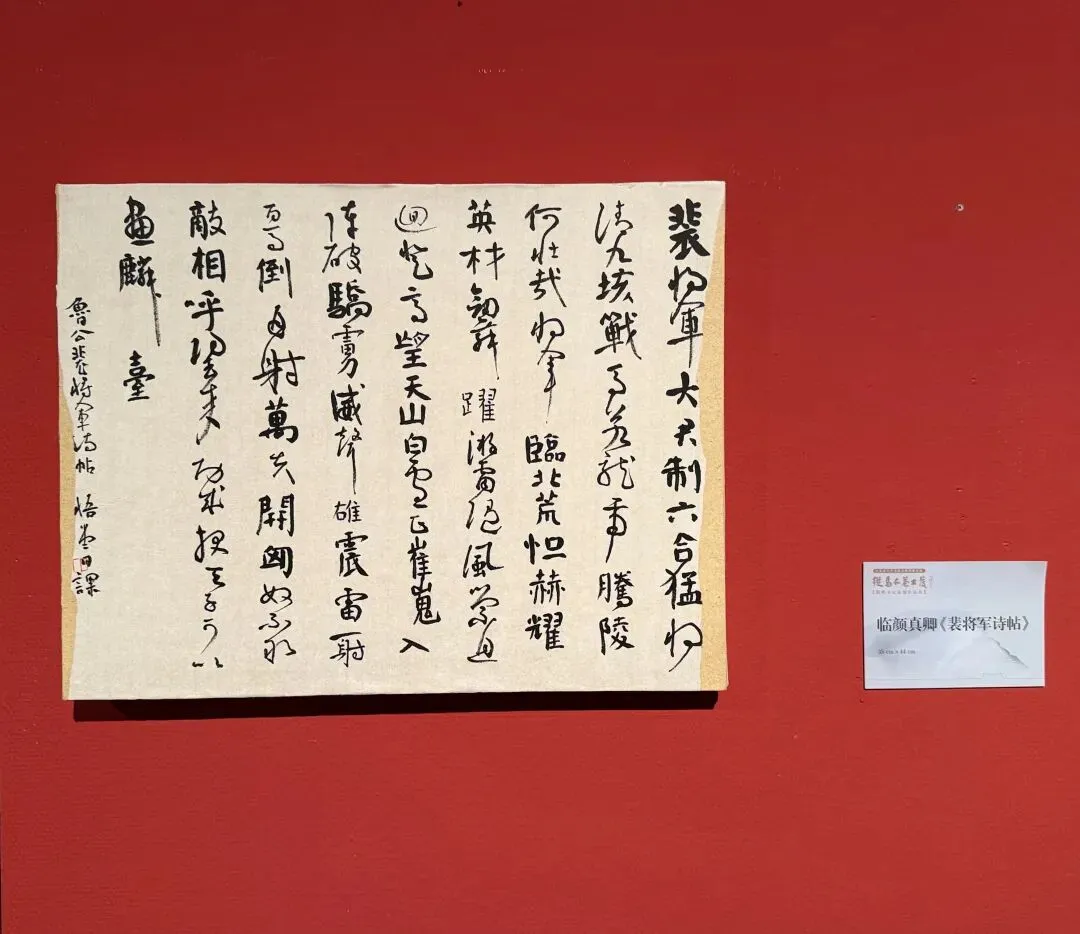 裴将軍大君制六合猛将
清九垓戰馬若龍虎騰陵
何壯哉将軍臨北荒怛赫耀
英材劔舞躍游雷随風縈且
迴登高望天山白雪正崔嵬入
陣破驕虜威聲雄震雷一射
百馬倒再射萬夫開匈奴不敢
敵相呼歸去來功成報天子可以
畫麟臺
魯公裴將軍詩帖 悟堂日課
临颜真卿《裴将军诗帖》